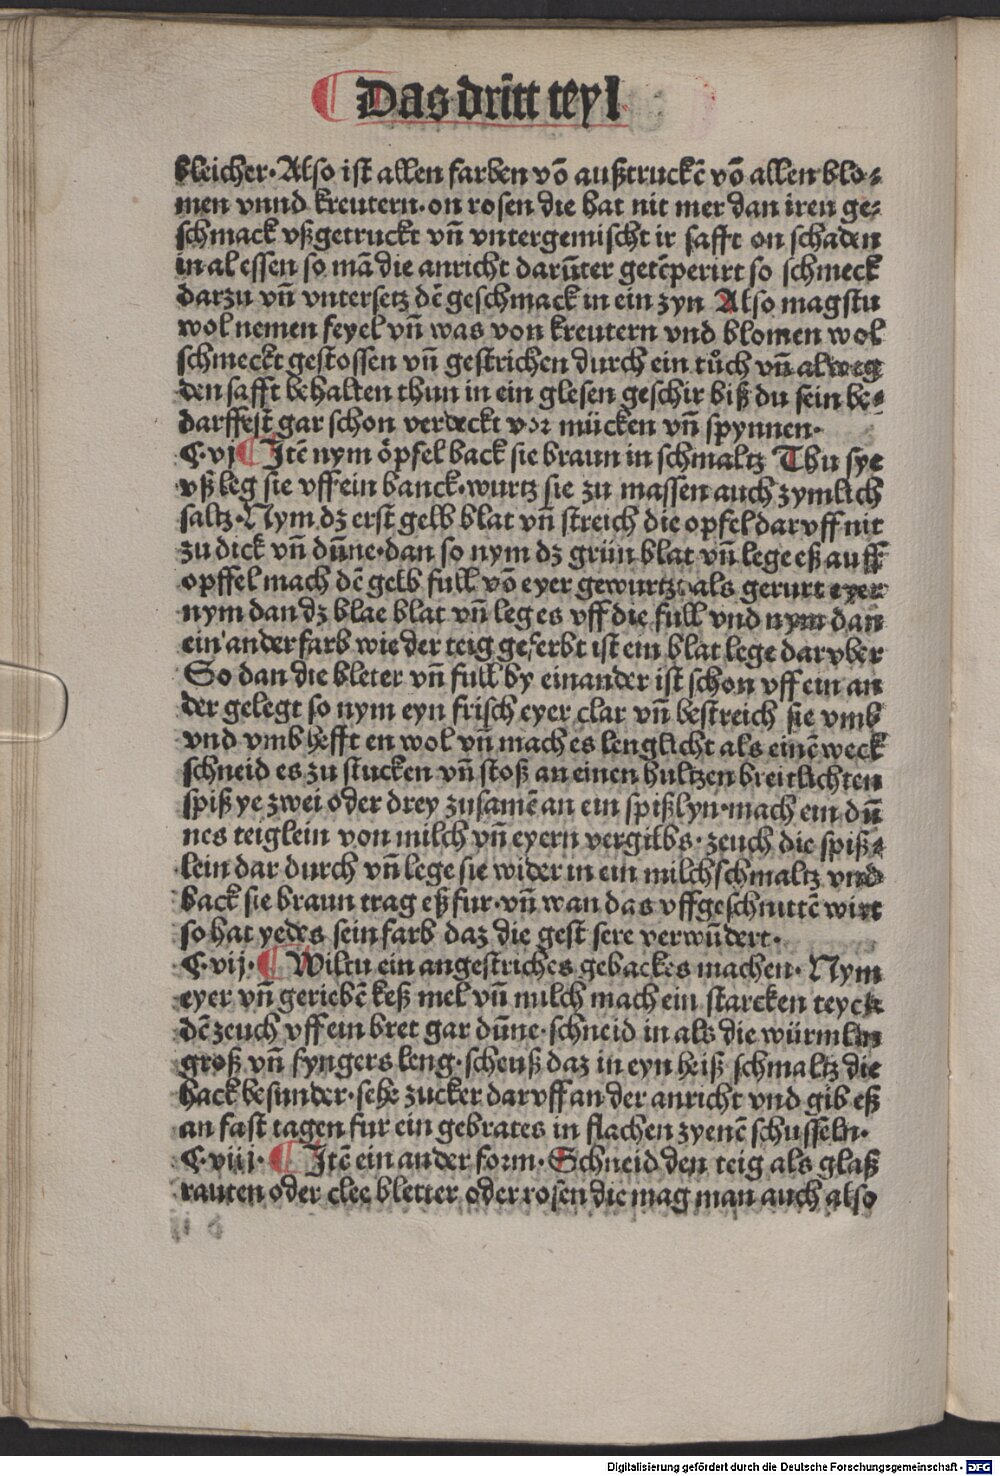 Das dritt teyl
bleicher. Also ist allen farben võ außtruckẽ võ allen blo⸗
men vnnd kreutern. on rosen die hat nit mer dan iren ge⸗
schmack vßgetruckt vñ vntergemischt ir safft on schaden
in al essen so mã die anricht darũter getẽperirt so schmeck
darzu vñ vntersetz dẽ geschmack in ein zyn Also magstu
wol nemen feyel vñ was von kreutern vnd blomen wol
schmeckt gestossen vñ gestrichen durch ein tůch vñ alweg
den safft behalten thun in ein glesen geschir biß du sein be⸗
darffest gar schon verdeckt vor mücken vñ spynnen.
C.vj Itẽ nym öpfel back sie braun in schmaltz Thu sye
vß leg sie vff ein banck. wurtz sie zu massen auch zymlich
saltz. Nym dz erst gelb blat vñ streich die opfel daruff nit
zu dick vñ dũne. dan so nym dz grün blat vñ lege eß auff
opffel mach dẽ gelb full võ eyer gewurtzt als gerurt eyer
nym dan dz blae blat vñ leg es vff die full vnd nym dan
ein ander farb wie der teig geferbt ist ein blat lege daruber
So dan die bleter vñ full by einander ist schon vff ein an
der gelegt so nym eyn frisch eyer clar vñ bestreich sie vmb
vnd vmb hefft en wol vñ mach es lenglicht als einẽ weck
schneid es zu stucken vñ stoß an einen hultzen breitlichten
spiß ye zwei oder drey zusamẽ an ein spißlyn. mach ein dũ
nes teiglein von milch vñ eyern vergilbs. zeuch die spiß⸗
lein dar durch vñ lege sie wider in ein milchschmaltz vnd
back sie braun trag eß fur. vñ wan das vffgeschnittẽ wirt
so hat yedes sein farb daz die gest sere verwũdert.
C.vij. Wiltu ein angestriches gebackes machen. Nym
eyer vñ geriebẽ keß mel vñ milch mach ein starcken teyck
dẽ zeuch vff ein bret gar dũne. schneid in als die würmlin
groß vñ fyngers leng. scheuß daz in eyn heiß schmaltz die
back besunder. sehe zucker daruff an der anricht vnd gib eß
an fast tagen fur ein gebrates in flachen zyenẽ schusseln.
C.viij. Itẽ ein ander form. Schneid den teig als glaß
rauten oder clee bletter oder rosen die mag man auch also
Digitalisierung gefördert durch die Deutsche Forschungsgemeinschaft - DFG